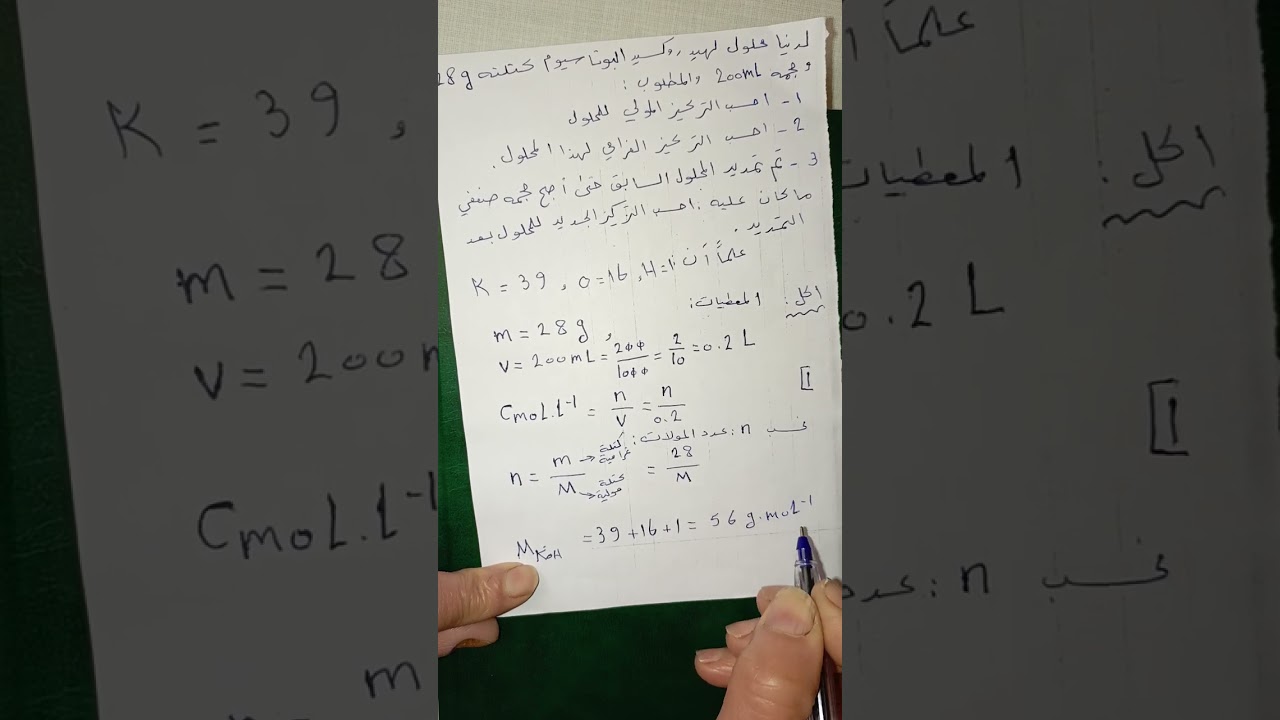 لدينا محلول لهيدروكسيد البوتاسيوم كتلته 28g
وحجمه 200mL والمطلوب :
1- احسب التركيز المولي للمحلول
2- احسب التركيز الغرامي لهذا المحلول .
3- تم تمديد المحلول السابق حتى أصبح حجمه ضعفي
ما كان عليه : احسب التركيز الجديد للمحلول بعد
التمديد .
علماً أن K = 39 , O = 16 , H = 1
الحل : المعطيات :
m = 28 g ,
V = 200 mL = 200/1000 = 2/10 = 0.2 L
1]
C mol.L⁻¹ = n/V = n/0.2
نحسب n : عدد المولات :
n = m/M = 28/M
كتلة غرامية
كتلة مولية
M KOH = 39 + 16 + 1 = 56 g.moL⁻¹